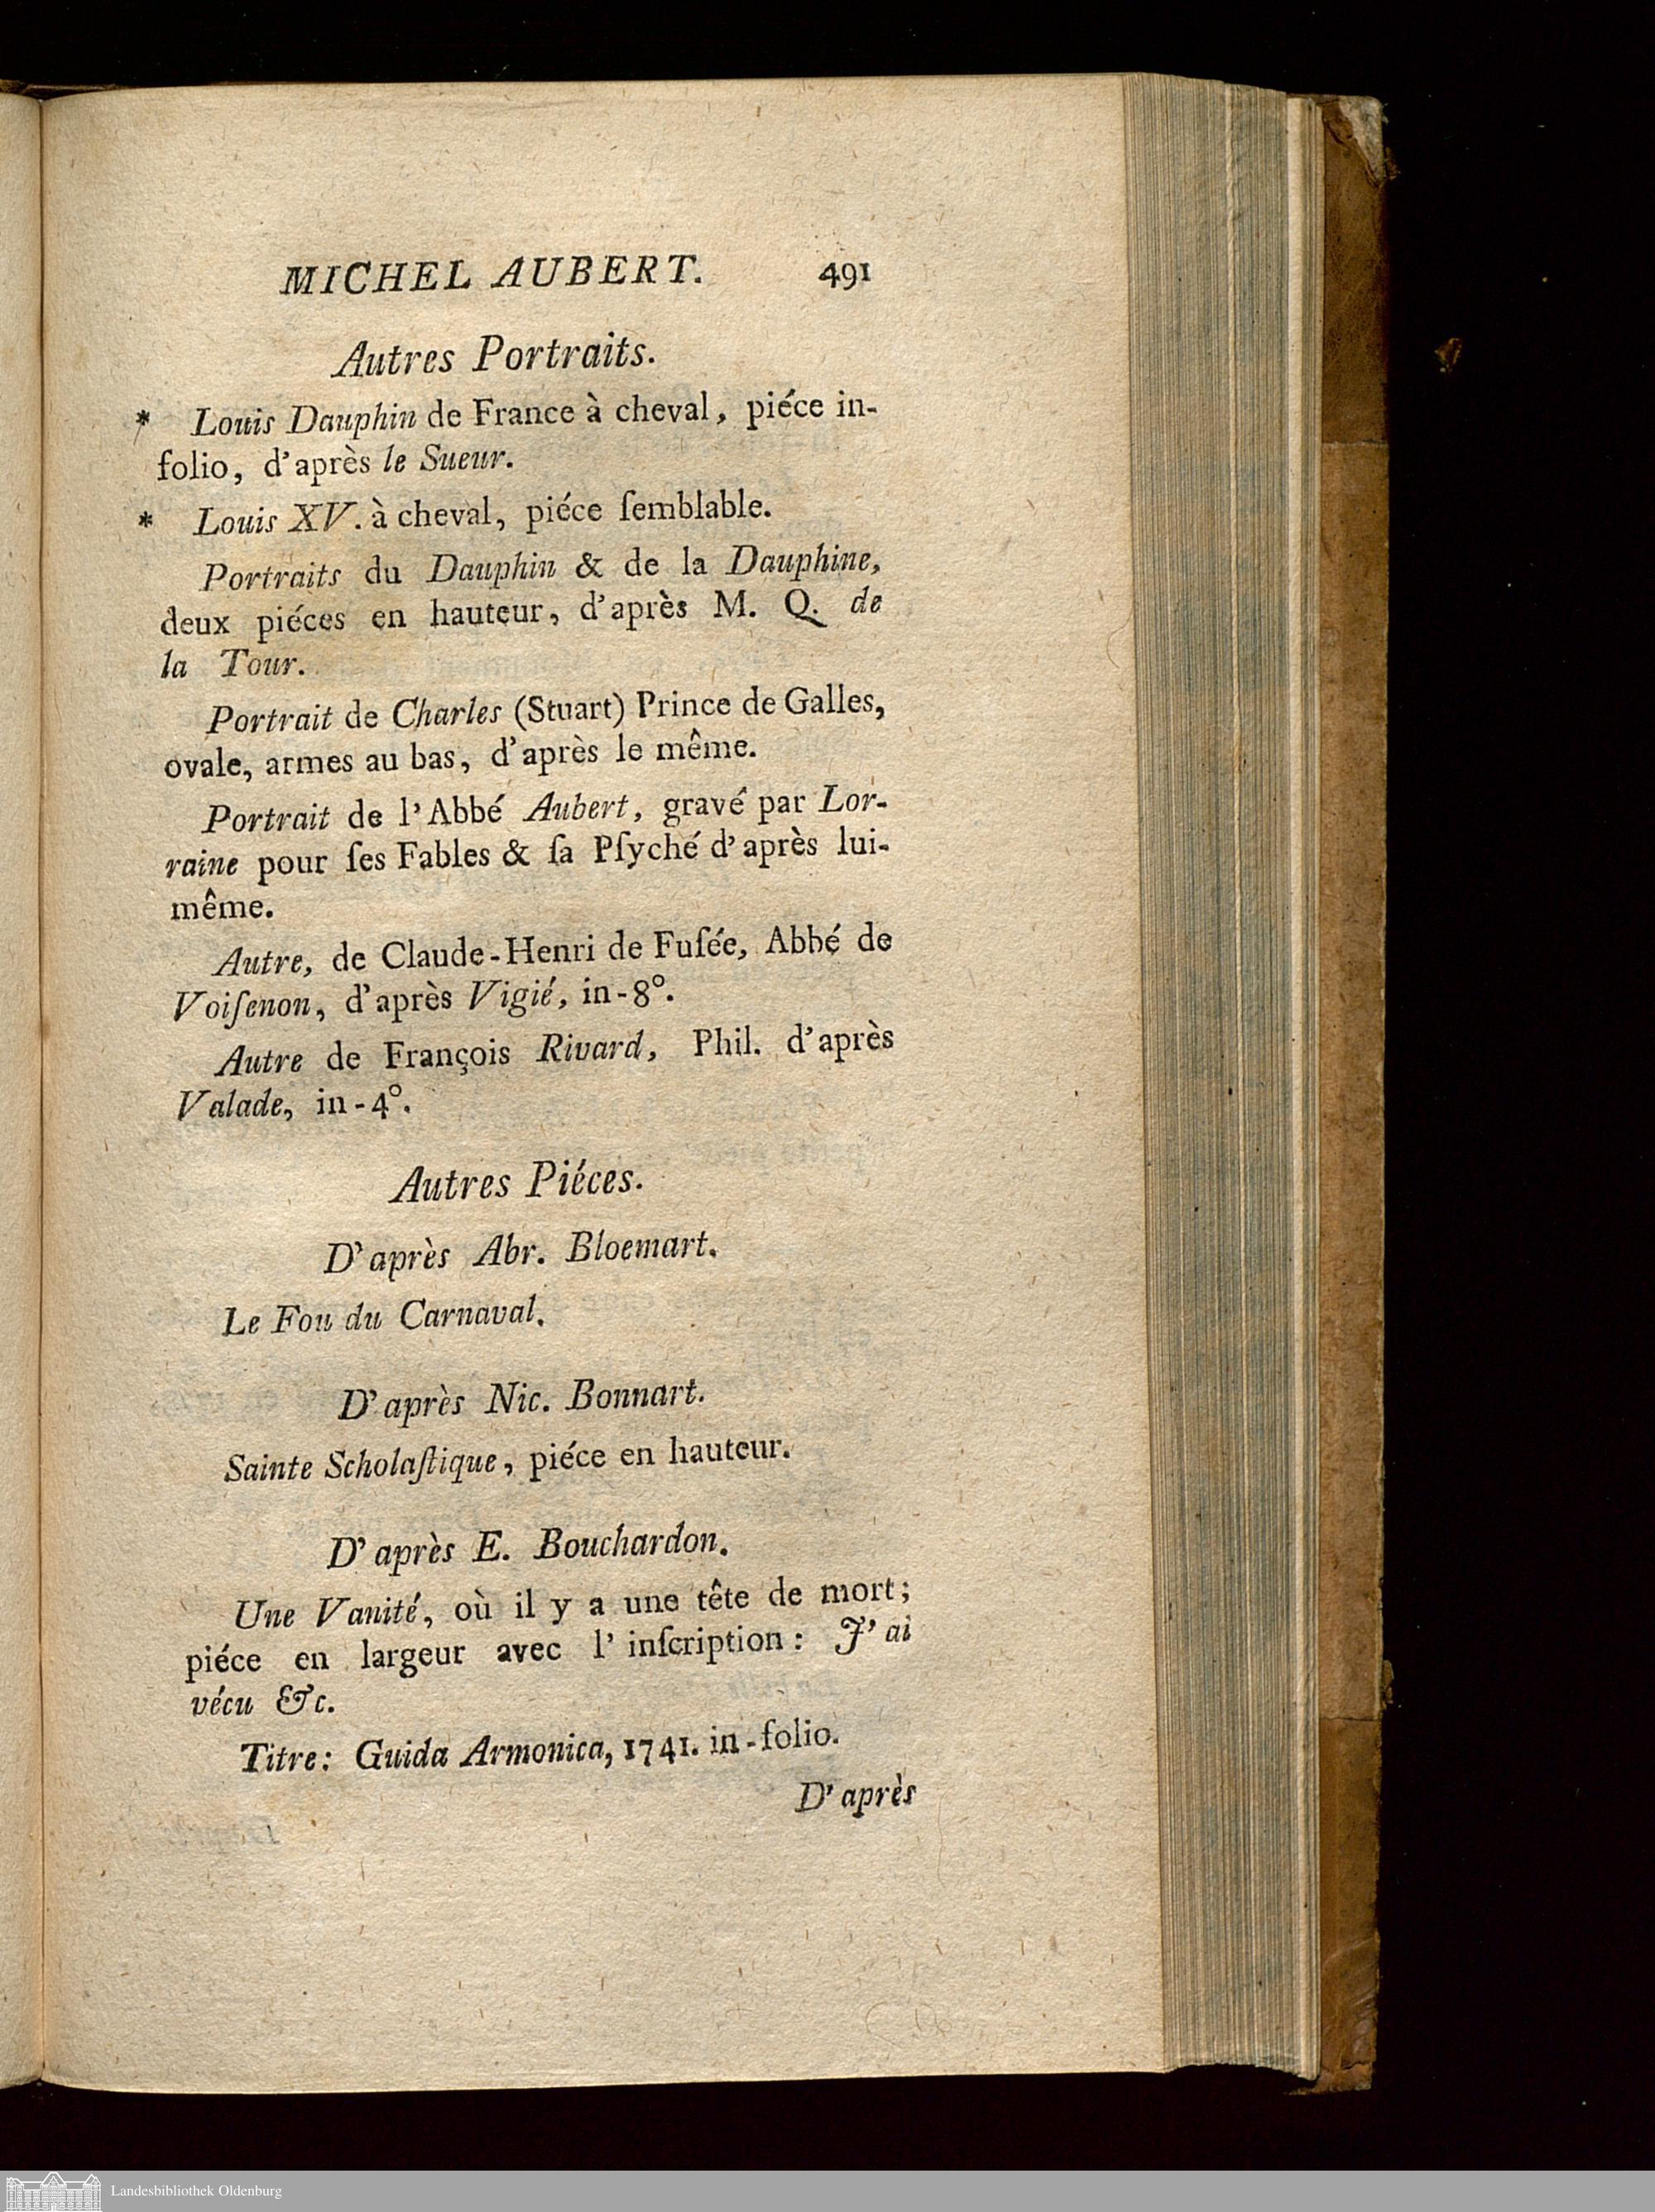 MICHEL AUBERT. 491
Autres Portraits.
* Louis Dauphin de France à cheval, piéce in-
folio, d'après le Sueur.
* Louis XV. à cheval, piéce ſemblable.
Portraits du Dauphin & de la Dauphine,
deux piéces en hauteur, d'après M. Q. de
la Tour.
Portrait de Charles (Stuart) Prince de Galles,
ovale, armes au bas, d'après le même.
Portrait de l'Abbé Aubert, gravé par Lor-
raine pour ſes Fables & ſa Pſyché d'après lui-
même.
Autre, de Claude-Henri de Fuſée, Abbé de
Voiſenon, d'après Vigié, in-8°.
Autre de François Rivard, Phil. d'après
Valade, in-4°.
Autres Piéces.
D'après Abr. Bloemart.
Le Fou du Carnaval.
D'après Nic. Bonnart.
Sainte Scholaſtique, piéce en hauteur.
D'après E. Bouchardon.
Une Vanité, où il y a une tête de mort;
piéce en largeur avec l'inſcription: J'ai
vécu &c.
Titre: Guida Armonica, 1741. in-folio.
D'après
Landesbibliothek Oldenburg